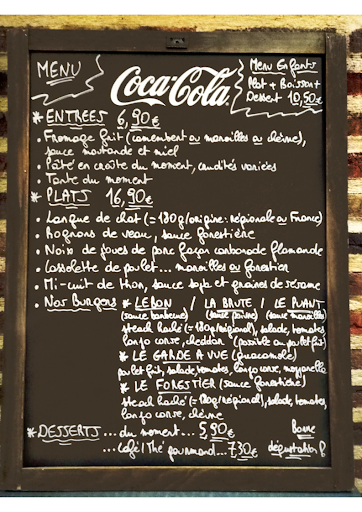 MENU
Coca-Cola
Menu Enfants
Plat + Boisson +
Dessert 10,50€
* ENTREES 6,90€
• Fromage frit (camembert ou maroilles ou chèvre),
sauce normande et miel
• Pâté en croûte du moment, crudités variées
• Tarte du moment
* PLATS 16,90€
• Langue de chat (= 180g/origine: régionale ou France)
• Rognons de veau, sauce forestière
• Noix de joues de porc façon carbonade flamande
• Cassolette de poulet... maroilles ou forestier
• Mi-cuit de thon, sauce soja et graines de sésame
• Nos Burgers * LE BON / LA BRUTE / LE PUANT
(sauce barbecue) (sauce poivre) (sauce maroilles)
steak haché (= 180g/régional), salade, tomates,
longo corse, cheddar (possible au poulet frit)
* LE GARDE A VUE (guacamole)
poulet frit, salade, tomates, longo corse, mozzarella
* LE FORESTIER (sauce forestière)
steak haché (= 180g/régional), salade, tomates,
longo corse, chèvre
* DESSERTS ... du moment... 5,90€
... café/Thé gourmand... 7,30€
Bonne
dégustation !